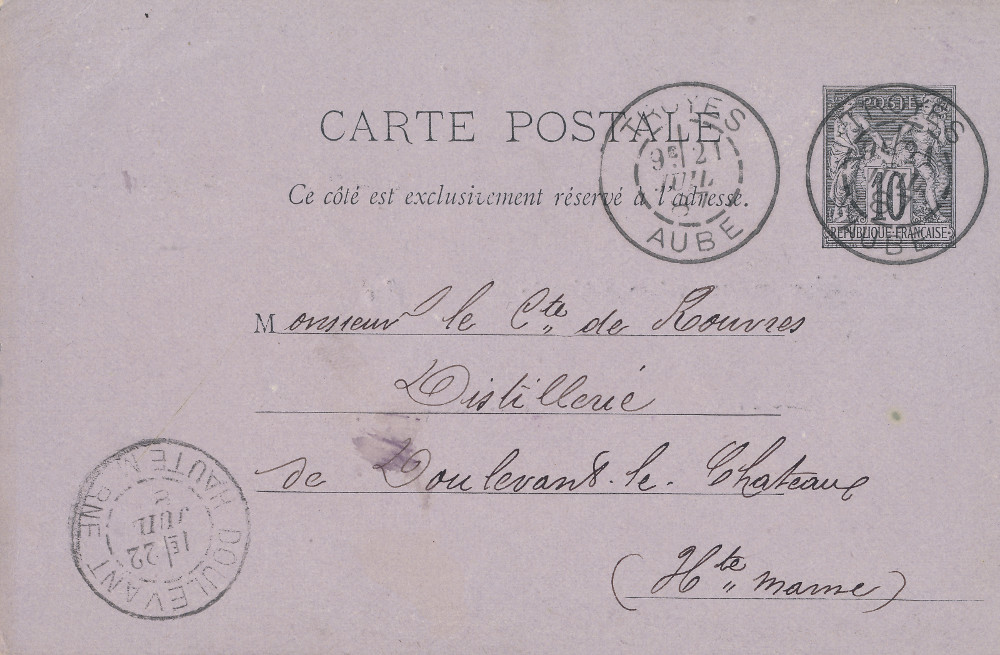 CARTE POSTALE
Ce côté est exclusivement réservé à l'adresse.
TROYES
9E 21
JUIL
AUBE
POSTES
10
REPUBLIQUE FRANÇAISE
TROYES
AUBE
Monsieur le Cte de Rouvres
Distillerie
de Doulevant-le-Chateaux
(Hte Marne)
DOULEVANT
1E 22
JUIL
HAUTE MARNE